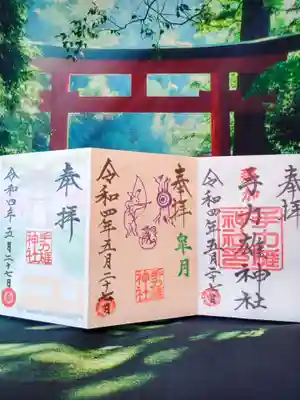 奉拝
手力雄神社
手力雄
神社
令和四年五月二十七日
奉拝
皐月
手力雄
神社
令和四年五月二十七日
奉拝
手力雄
神社
令和四年五月二十七日